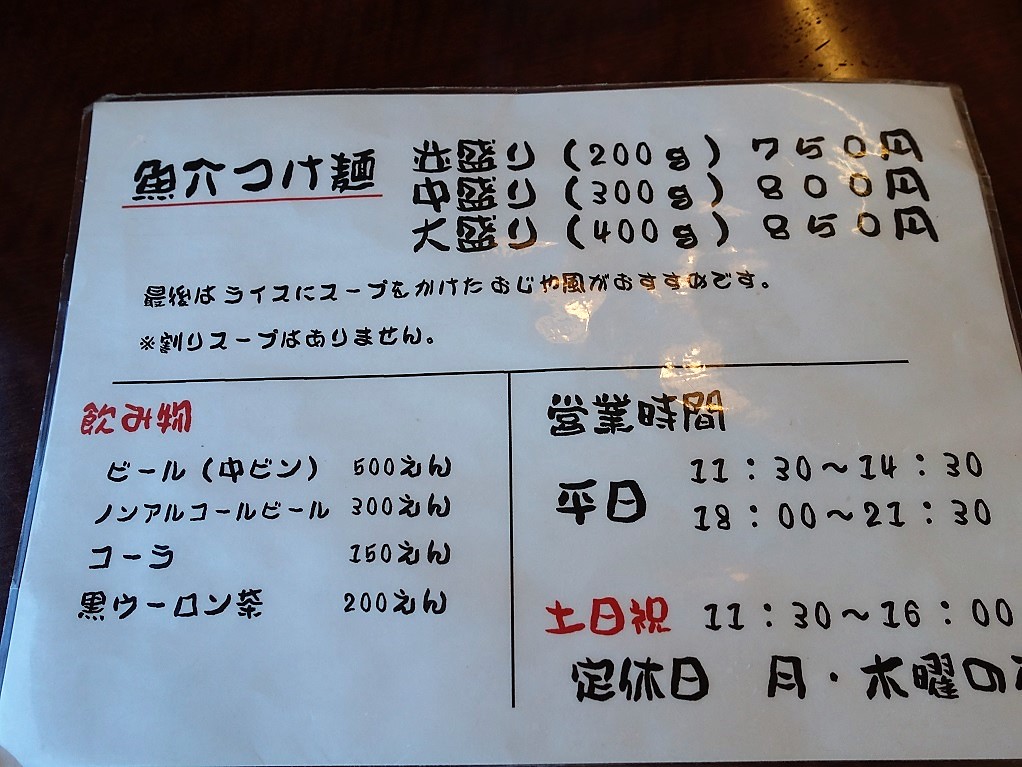 魚介つけ麺
並盛り（200g） 750円
中盛り（300g） 800円
大盛り（400g） 850円
最後はライスにスープをかけたおじや風がおすすめです。
※割りスープはありません。
飲み物
ビール（中ビン） 500えん
ノンアルコールビール 300えん
コーラ 150えん
黒ウーロン茶 200えん
営業時間
平日 11：30～14：30
18：00～21：30
土日祝 11：30～16：00
定休日 月・木曜の